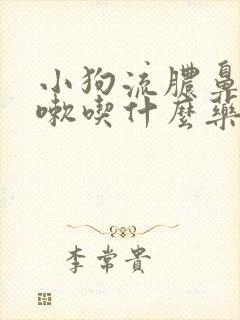 小狗流膿鼻
嗽喫什麼藥
李常貴